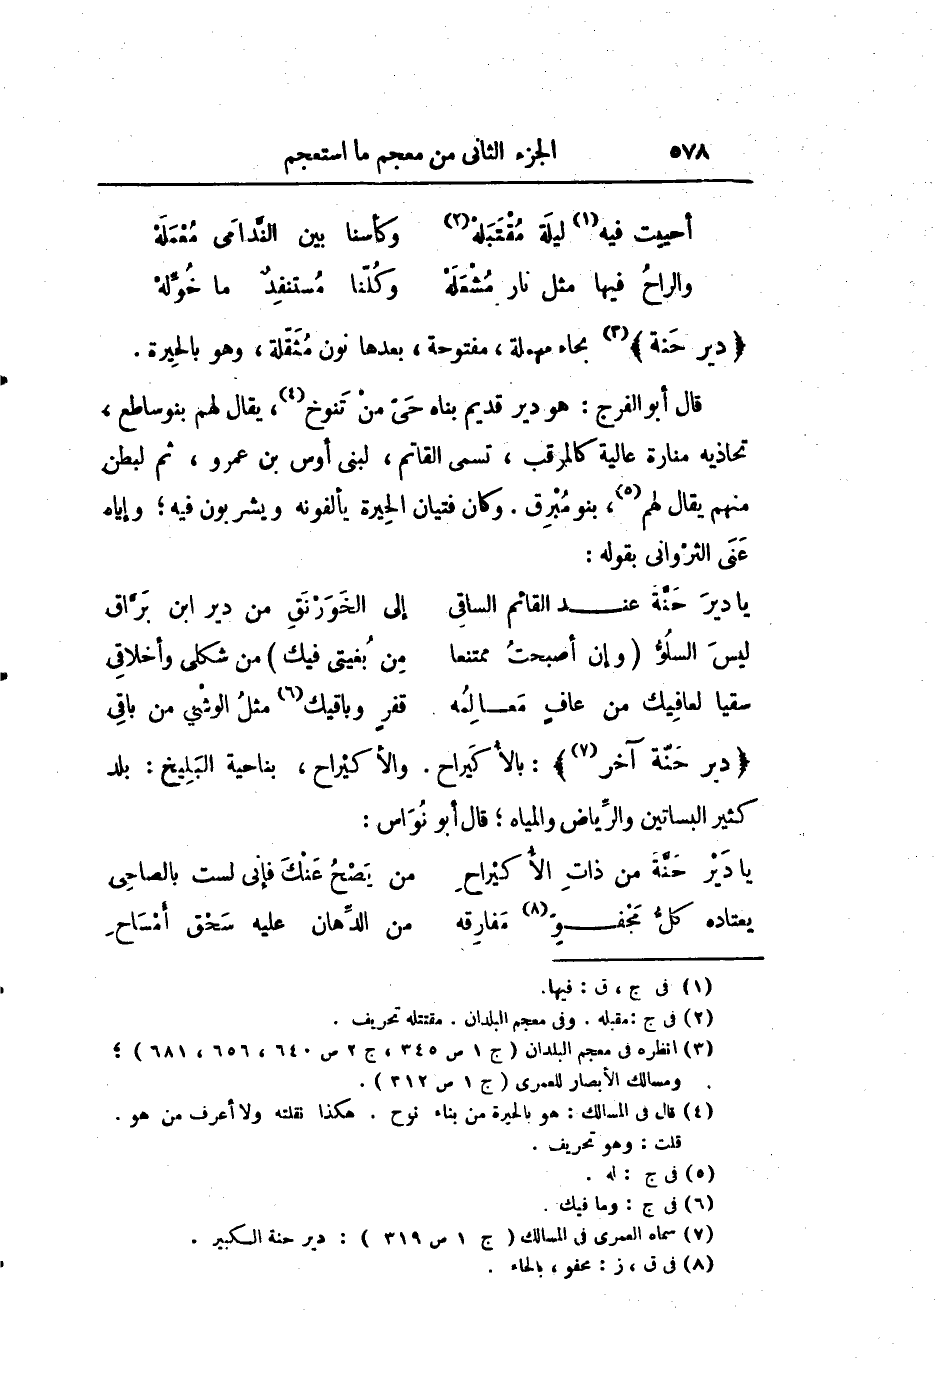 ٥٧٨ الجزء الثانى من معجم ما استعجم
أحييت فيه(١) ليلَة مُقْتَبَلهْ(٢) وكأسنا بين النَّدامَى مُعْمَلَهْ
والراحُ فيها مثل نار مُشْعَلَهْ وكُلّنا مُستنفِدٌ ما خُوِّلهْ
﴿ دير حَنة ﴾(٣) بحاء مهملة ، مفتوحة ، بعدها نون مُثَقّلة ، وهو بالحِيرة .
قال أبو الفرج : هو دير قديم بناه حَىّ منْ تَنوخ(٤)، يقال لهم بنو ساطع ،
تحاذيه منارة عالية كالمرقب ، تسمى القائم ، لبنى أوس بن عمرو ، ثم لبطن
منهم يقال لهم(٥)، بنو مُبْرِق . وكان فتيان الحِيرة يألفونه ويشربون فيه ؛ وإياه
عَنَى الثرْوانى بقوله :
يا ديرَ حَنَّةَ عند القائم الساقِى إلى الخَوَرْنَقِ من دير ابن بَرَّاق
ليسَ السلُوُّ ( وإن أصبحتُ ممتنعا مِن بُغيتى فيك ) من شكلى وأخلاقِى
سقيا لعافِيك من عافٍ مَعالِمُه قفرٍ وباقيك(٦) مثلُ الوشْىِ من باقِى
﴿ دير حَنّة آخر(٧) ﴾ : بالأُكَيراح . والأكيْراح ، بناحية البَلِيخ : بلد
كثير البساتين والرِّياض والمياه ؛ قال أبو نُوَاس :
يا دَيْرَ حَنَّةَ من ذاتِ الأُكَيْراحِ من يَصْحُ عَنْكَ فإنى لست بالصاحِى
يعتاده كلُّ مَجْفوٍّ(٨) مَفارِقه من الدِّهان عليه سَحْق أمْسَاحِ
(١) فى ج ، ق : فيها.
(٢) فى ج : مقبله . وفى معجم البلدان . مقتتله تحريف .
(٣) انظره فى معجم البلدان ( ج ١ س ٣٤٥ ، ج ٢ س ٦٤٠ ، ٦٥٦ ، ٦٨١ ) ؛
ومسالك الأبصار للعمرى ( ج ١ س ٣١٢ ) .
(٤) قال فى المسالك : هو بالحيرة من بناء نوح . هكذا نقلته ولا أعرف من هو .
قلت : وهو تحريف .
(٥) فى ج : له .
(٦) فى ج : وما فيك .
(٧) سماه العمرى فى المسالك ( ج ١ س ٣١٩ ) : دير حنة الكبير .
(٨) فى ق ، ز : محفو ، بالحاء .